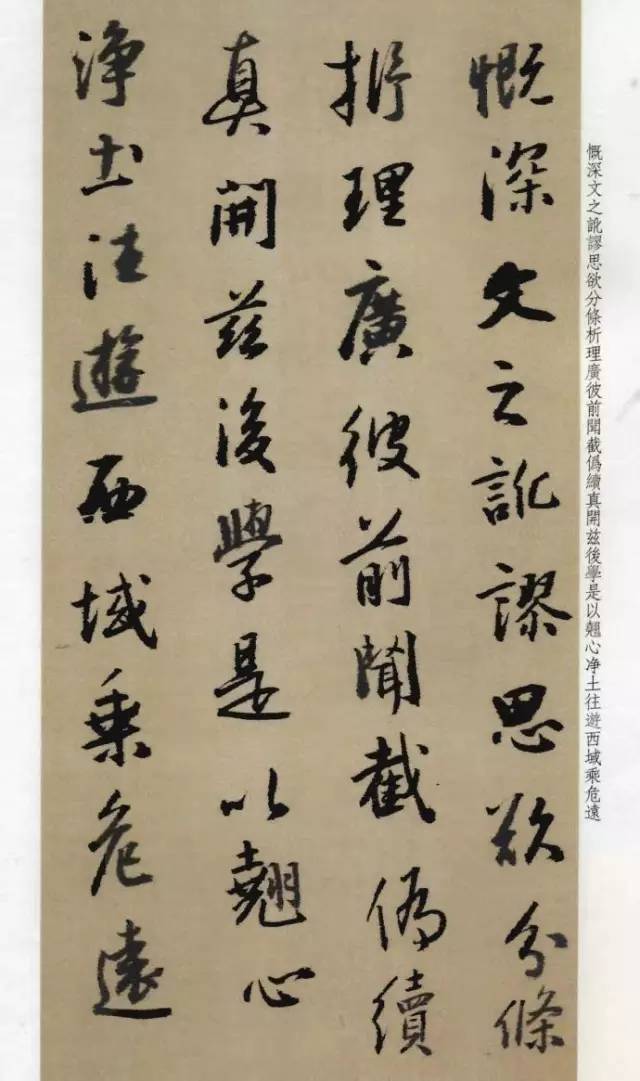 慨深文之訛謬思欲分條析理廣彼前聞截僞續真開茲後學是以翹心净土往遊西域乘危遠
慨深文之訛謬思欲分條
析理廣彼前聞截偽續
真開茲後學是以翹心
淨土往遊西域乘危遠